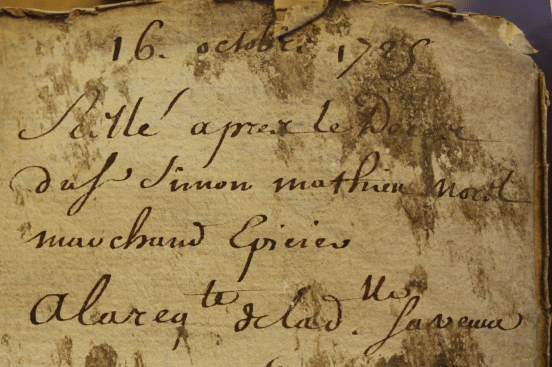 16. octobre 1725
Scellé apres le Deces
du Sr Simon mathieu
marchand Epicier
Alareqte delad.lle Sa veuve